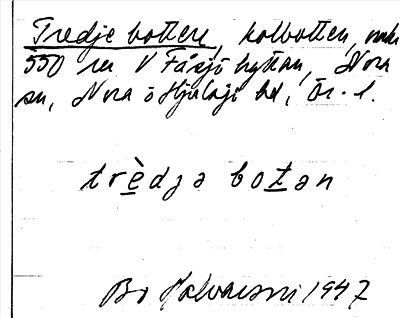 Tredje botten, kolbotten, omkr
550 m V Fåsjöhyttan, Nora
sn, Nora o Hjulsjö bd, Ör. l.
trèdjə botən
Bo Halvarson 1947